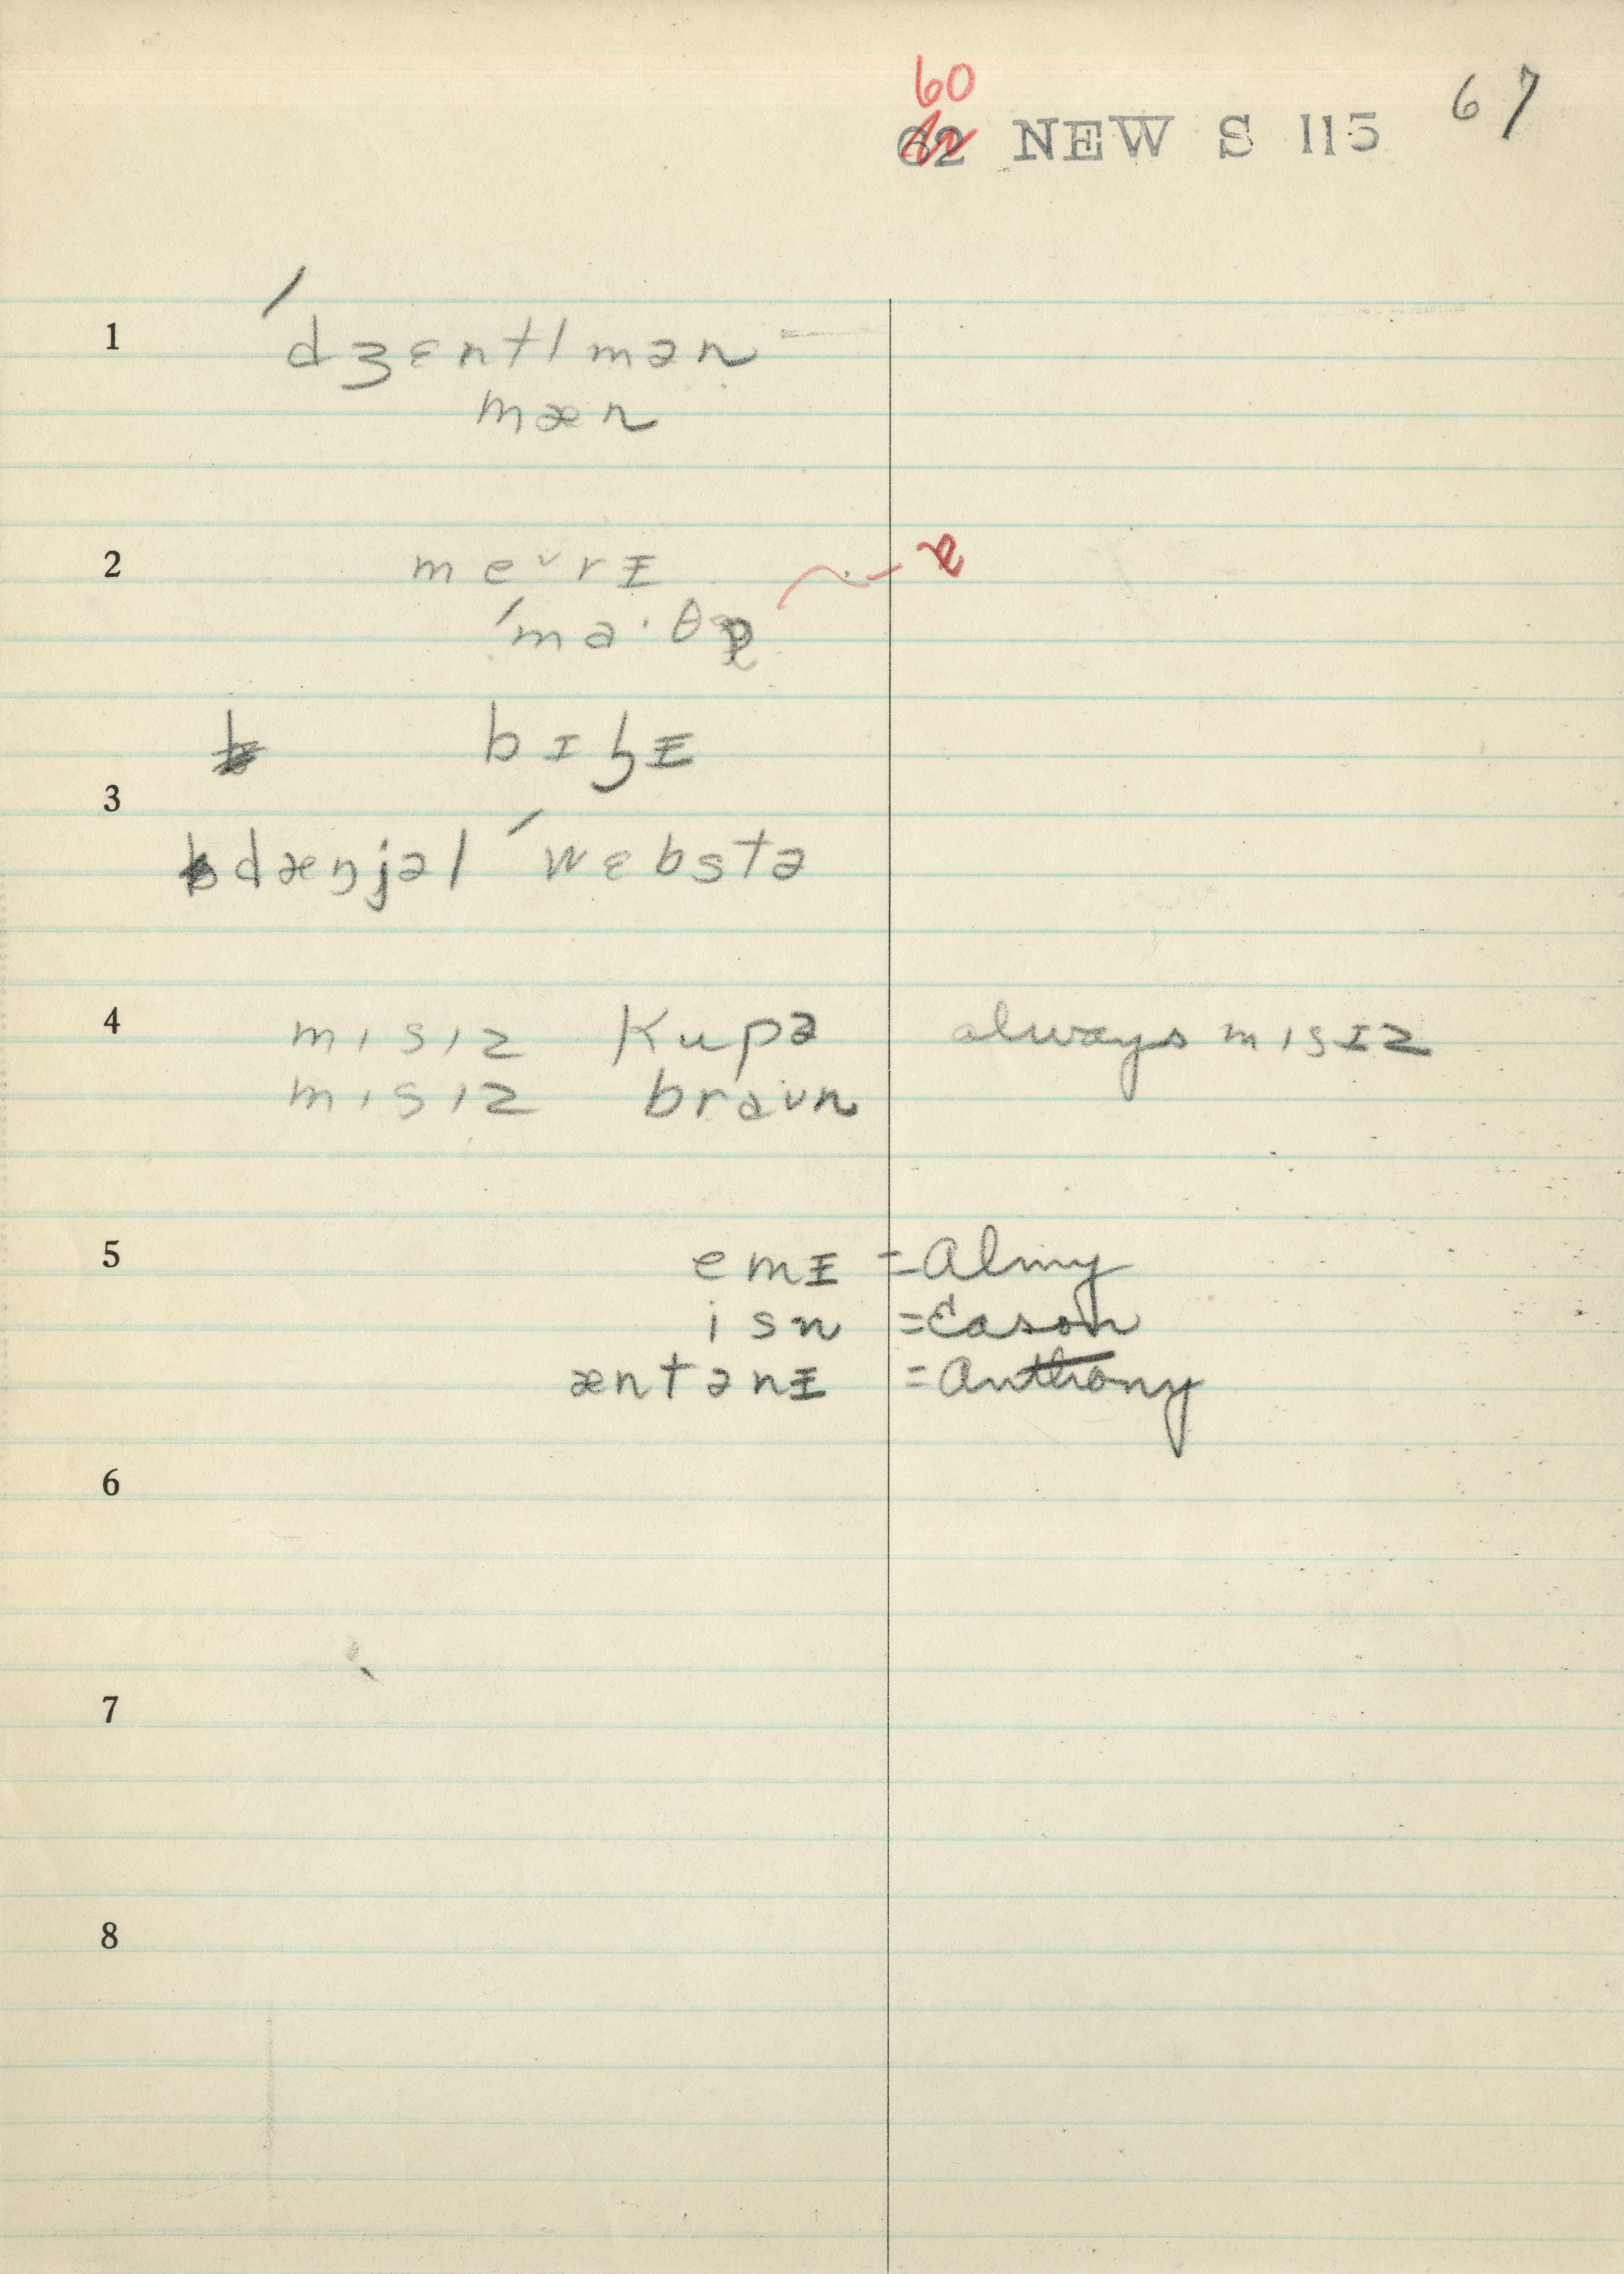 60
62 NEW S 115 67
1 ˈdʒɛntlmən
mæn
2 meᵛrɪ
ˈma·θə
3
dænjəl ˈwɛbstə
4 mɪsɪz kupə always mɪsɪz
mɪsɪz braun
5 emɪ = Almy
isn = Eason
æntənɪ = Anthony
6
7
8